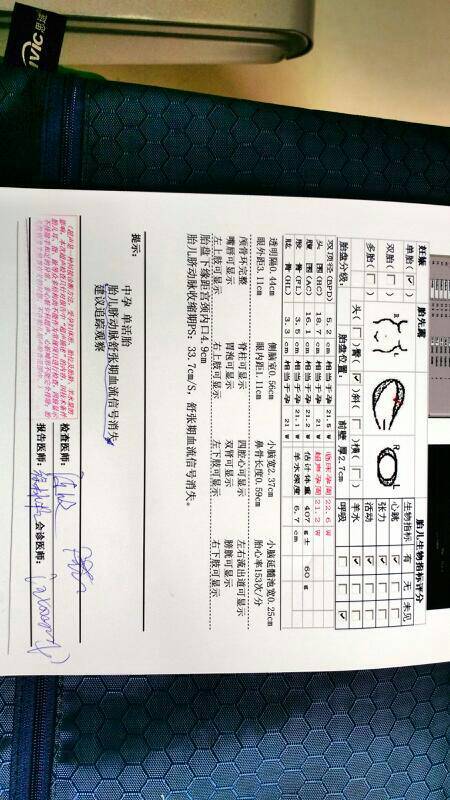 妊娠
胎先露
胎儿生物指标评分
单胎(✓)
生物指标 有 无 未见
心跳
双胎( )
张力
活动
多胎( )
羊水
头( ) 臀(✓) 斜( ) 横( )
呼吸
胎盘分级:
胎盘位置: 前壁 厚2.7cm
双顶径(BPD) 5.2 cm 相当于孕 21.5 W 临床孕周 22.6 W
头 围(HC) 18.7 cm 相当于孕 21 W 超声孕周 21.2 W
腹 围(AC) 15.9 cm 相当于孕 21.2 W 估计体重 407 g± 60 g
股 骨(FL) 3.5 cm 相当于孕 21.1 W 羊水深度 6.7 cm
肱 骨(HL) 3.3 cm 相当于孕 21 W
透明隔0.44cm 侧脑室0.56cm 小脑宽2.37cm 小脑延髓池宽0.25cm
眼外距3.11cm 眼内距1.11cm 鼻骨长度0.59cm 胎心率153次/分
颅骨环完整 脊柱可显示 四腔心可显示 左右流出道可显示
嘴唇可显示 胃泡可显示 双肾可显示 膀胱可显示
左上肢可显示 右上肢可显示 左下肢可显示 右下肢可显示
胎盘下缘距宫颈内口4.9cm
胎儿脐动脉收缩期PS: 33.7cm/S, 舒张期血流信号消失。
提示:
中孕 单活胎
胎儿脐动脉舒张期血流信号消失
建议追踪观察
检查医师:
报告医师: 会诊医师: